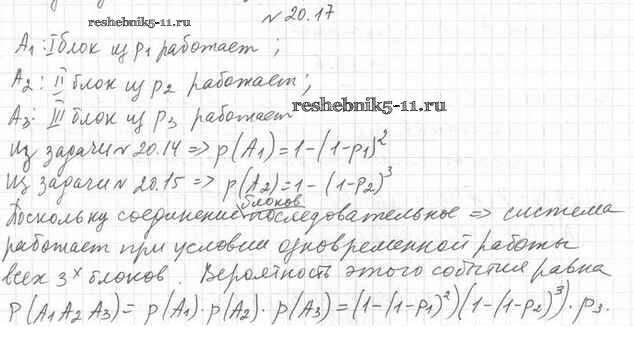 № 20.17
reshebnik5-11.ru
A₁: I блок из p₁ работает;
A₂: II блок из p₂ работает;
A₃: III блок из p₃ работает
reshebnik5-11.ru
Из задачи № 20.14 => p(A₁) = 1-(1-p₁)²
Из задачи № 20.15 => p(A₂) = 1-(1-p₂)³
Поскольку соединение блоков последовательное => система
работает при условии одновременной работы
всех 3ˣ блоков. Вероятность этого события равна
P(A₁A₂A₃) = p(A₁)·p(A₂)·p(A₃) = (1-(1-p₁)²)(1-(1-p₂)³)·p₃.